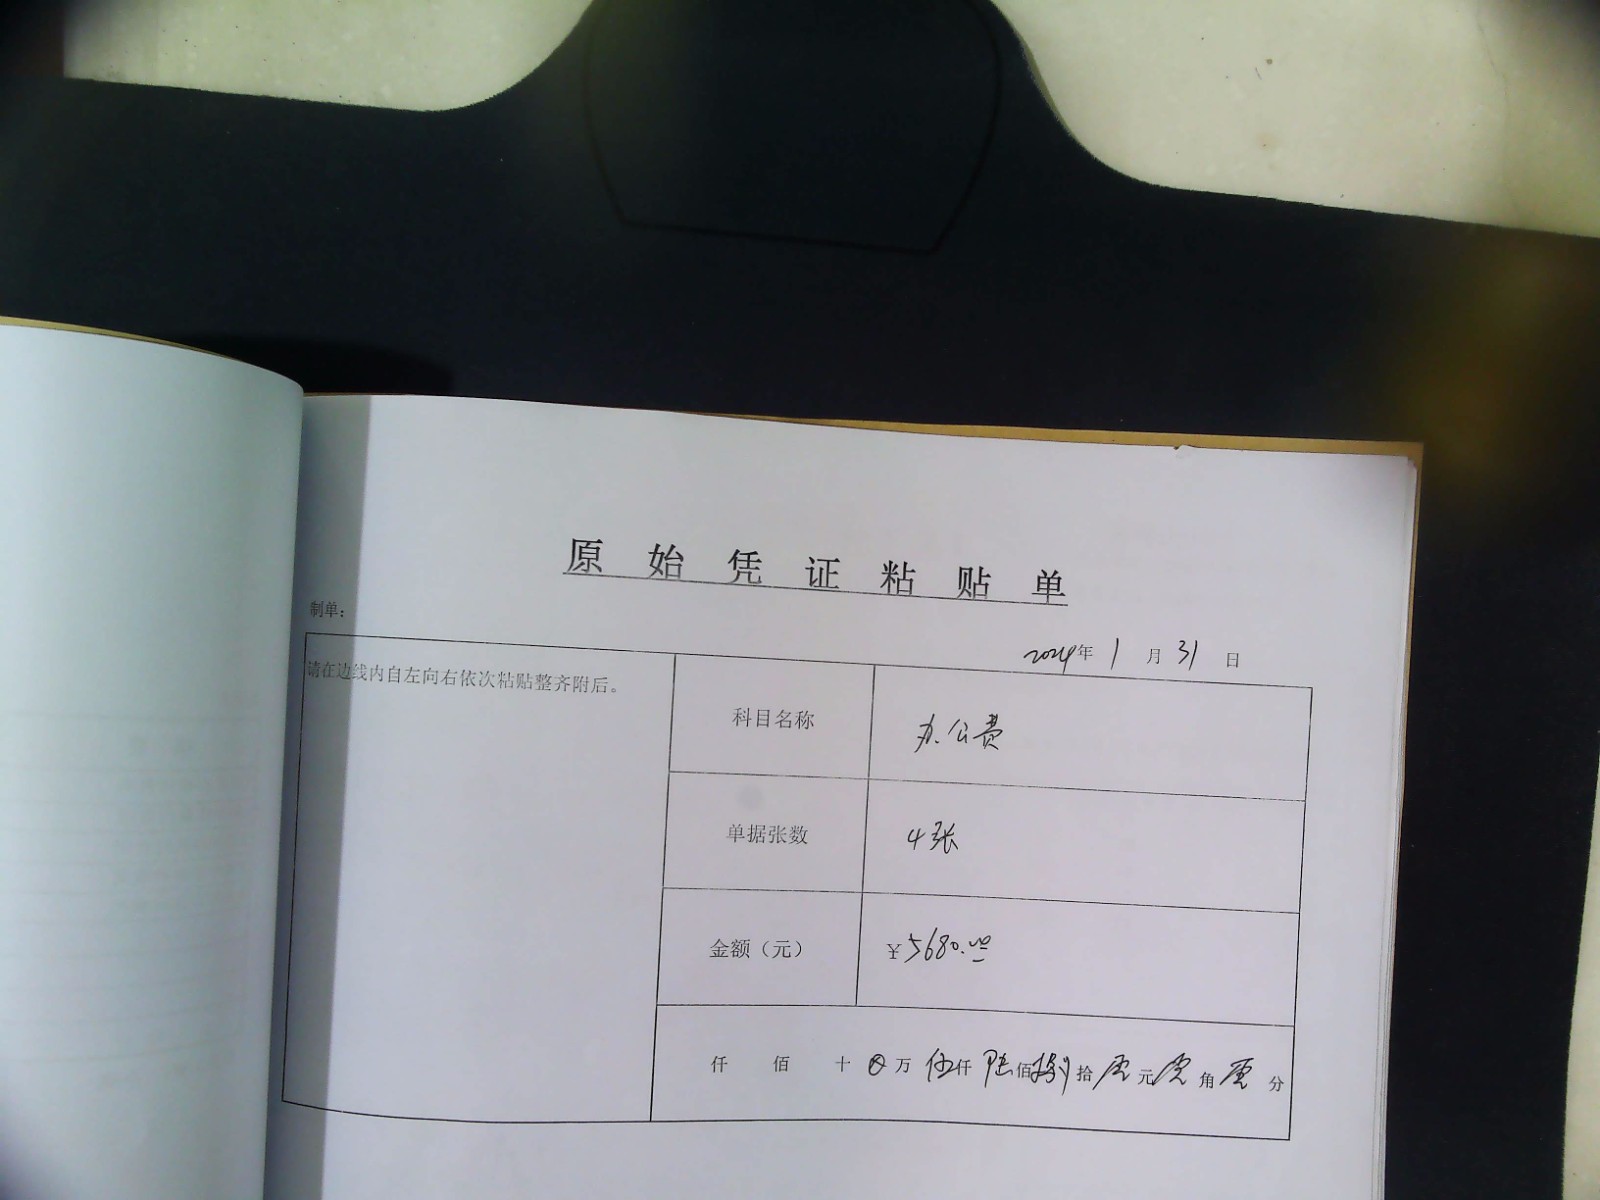 原始凭证粘贴单
制单：
2024年1月31日
请在边线内自左向右依次粘贴整齐附后。
科目名称 办公费
单据张数 4张
金额（元） ¥5680.00
仟 佰 十 ⊗万 伍仟 陆佰 捌拾 零元 零角 零分